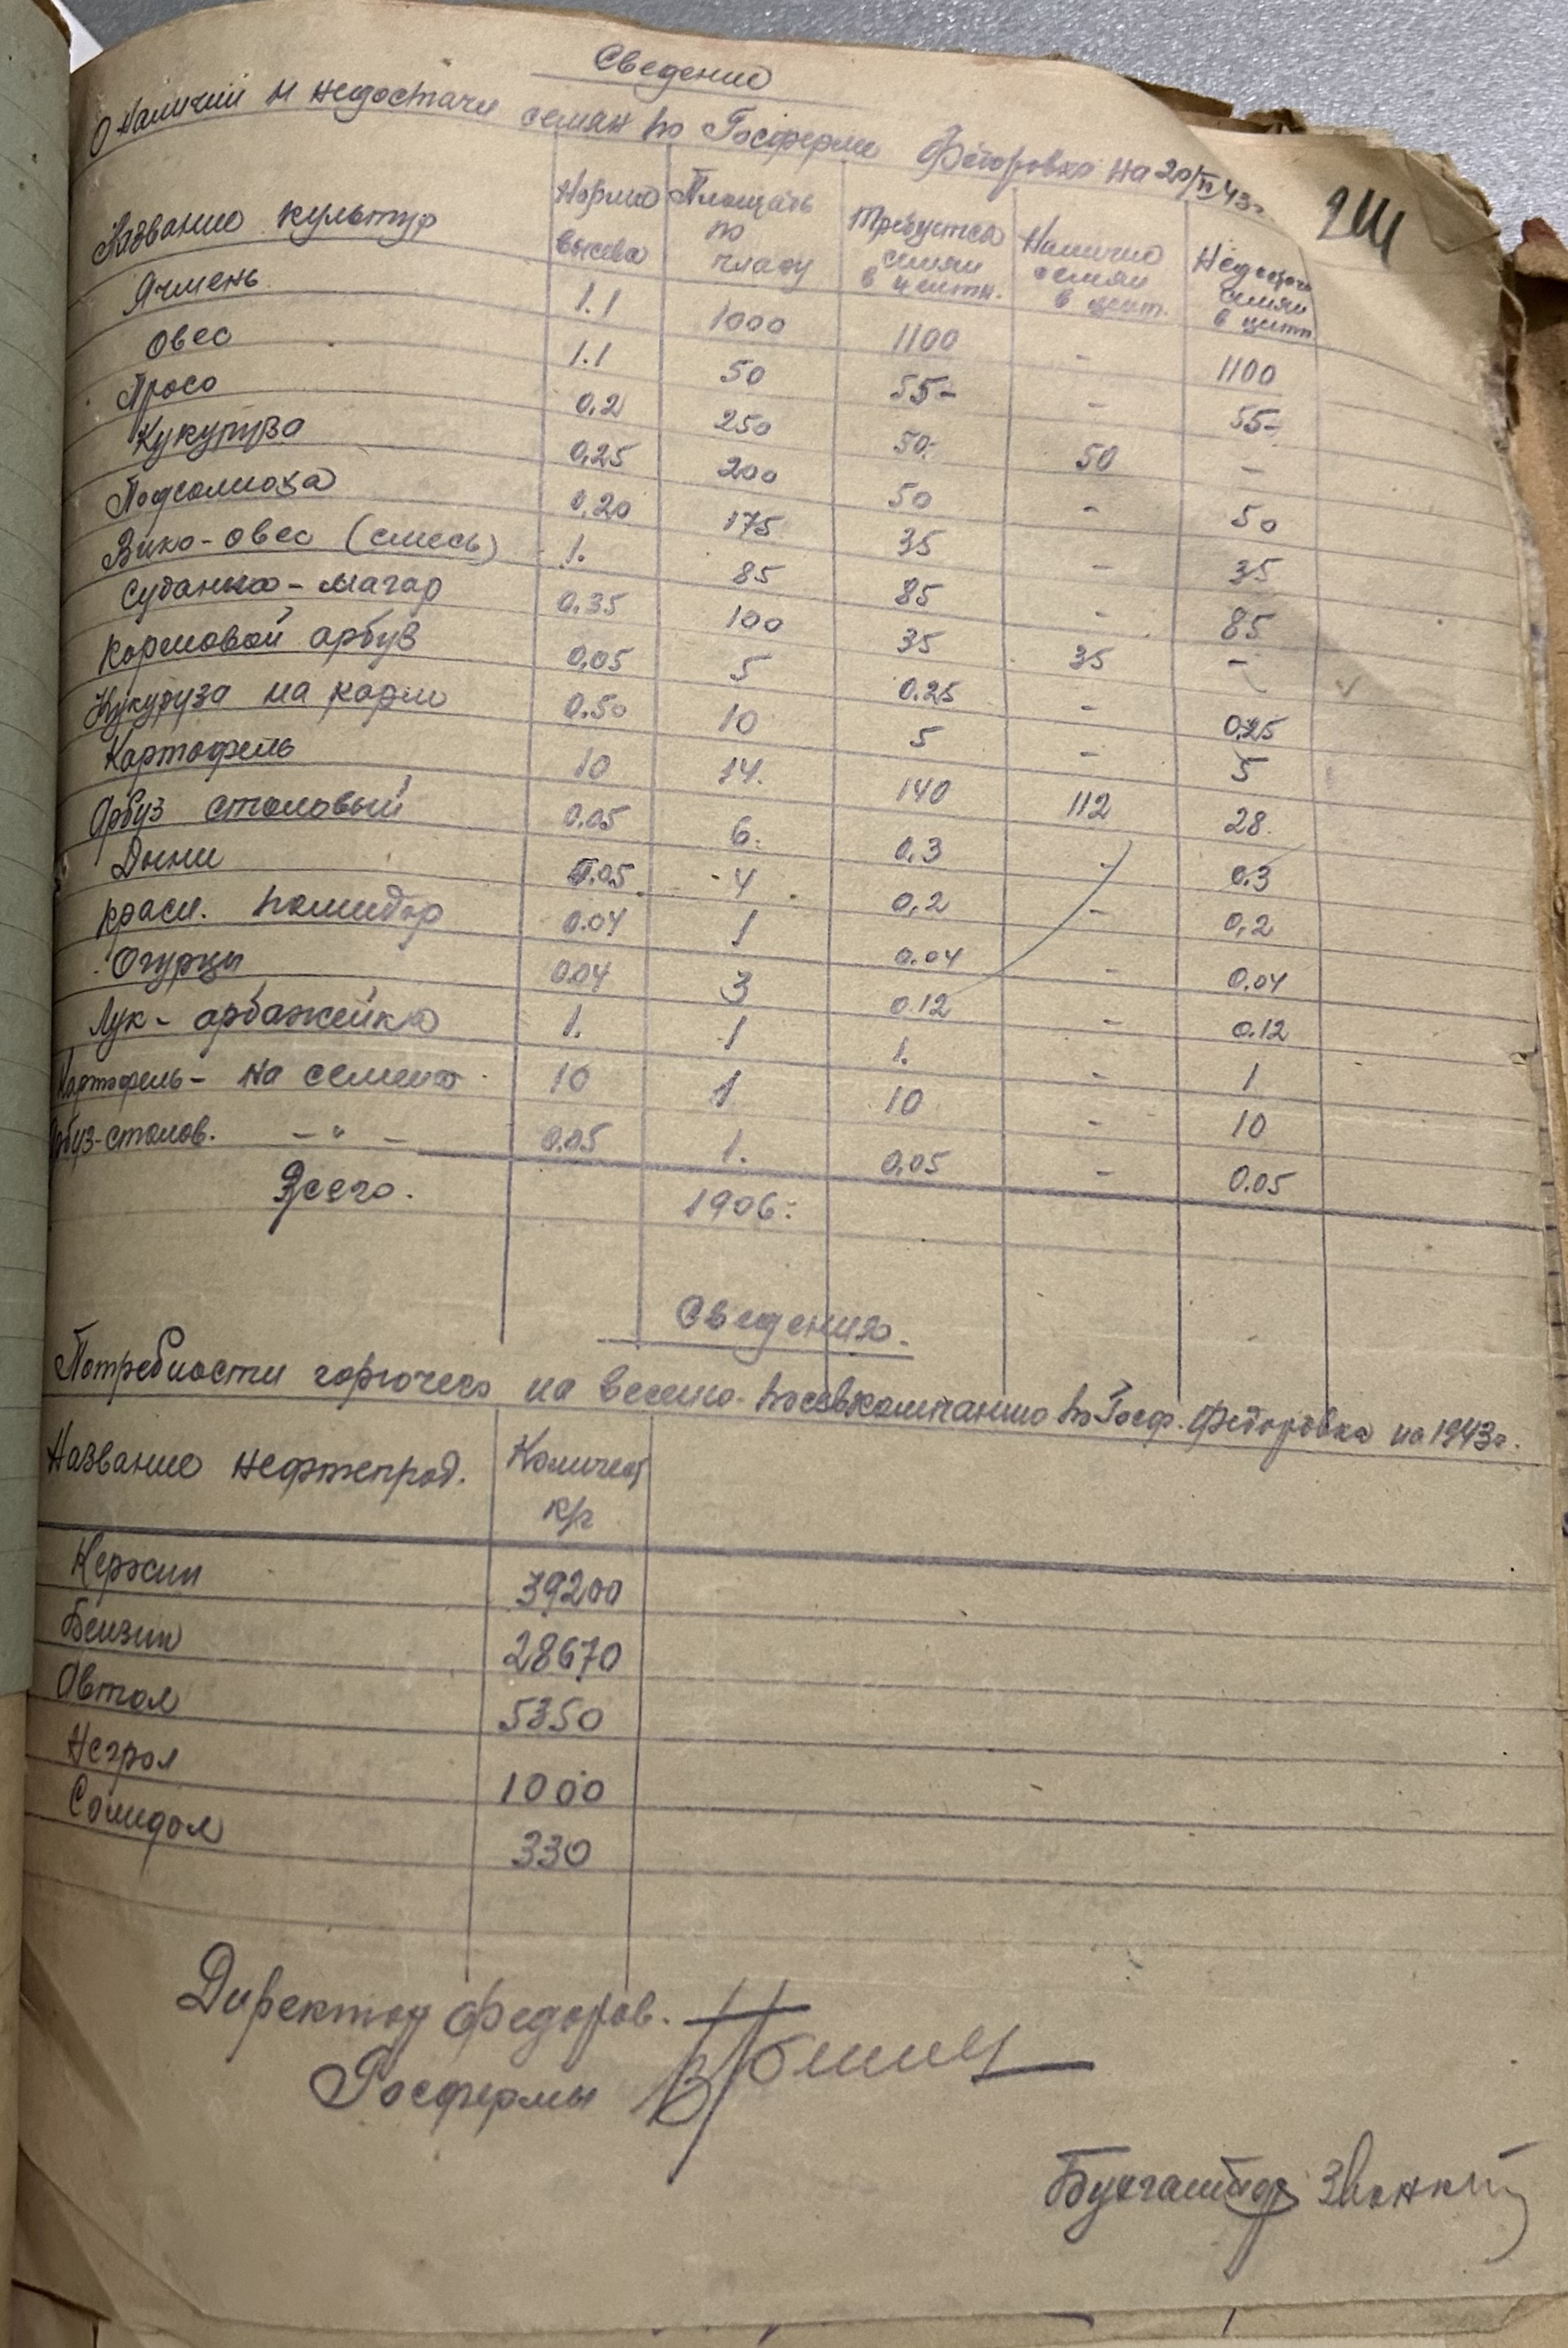 Сведение
о наличии и недостачи семян по Госферме Федоровка на 20/II 43г
211
Название культур Норма высева Площадь по плану Требуется семян в центн. Наличие семян в цент. Недостача семян в центн
Ячмень 1.1 1000 1100 - 1100
Овес 1.1 50 55- - 55-
Просо 0.2 250 50- 50 -
Кукуруза 0.25 200 50 - 50
Подсолнуха 0.20 175 35 - 35
Вико-овес (смесь) 1. 85 85 - 85
Суданка-магар 0.35 100 35 35 -
Кормовой арбуз 0,05 5 0.25 - 0.25
Кукуруза на корм 0.50 10 5 - 5
Картофель 10 14. 140 112 28.
Арбуз столовый 0.05 6. 0,3 - 0.3
Дыни 0.05 4 0,2 - 0,2
Красн. помидор 0.04 1 0.04 - 0.04
Огурцы 0.04 3 0.12 - 0.12
Лук- арбажейка 1. 1 1. - 1
Картофель- на семена 10 1 10 - 10
Арбуз-столов. -"- 0.05 1. 0,05 - 0.05
Всего. 1906.
Сведения.
Потребности горючего на весенне-посевкомпанию по Госф. Федоровка на 1943г.
Название нефтепрод. Количест кг
Керосин 39200
Бензин 28670
Автол 5350
Негрол 1000
Солидол 330
Директор Федоров.
Госфермы
Бухгалтер